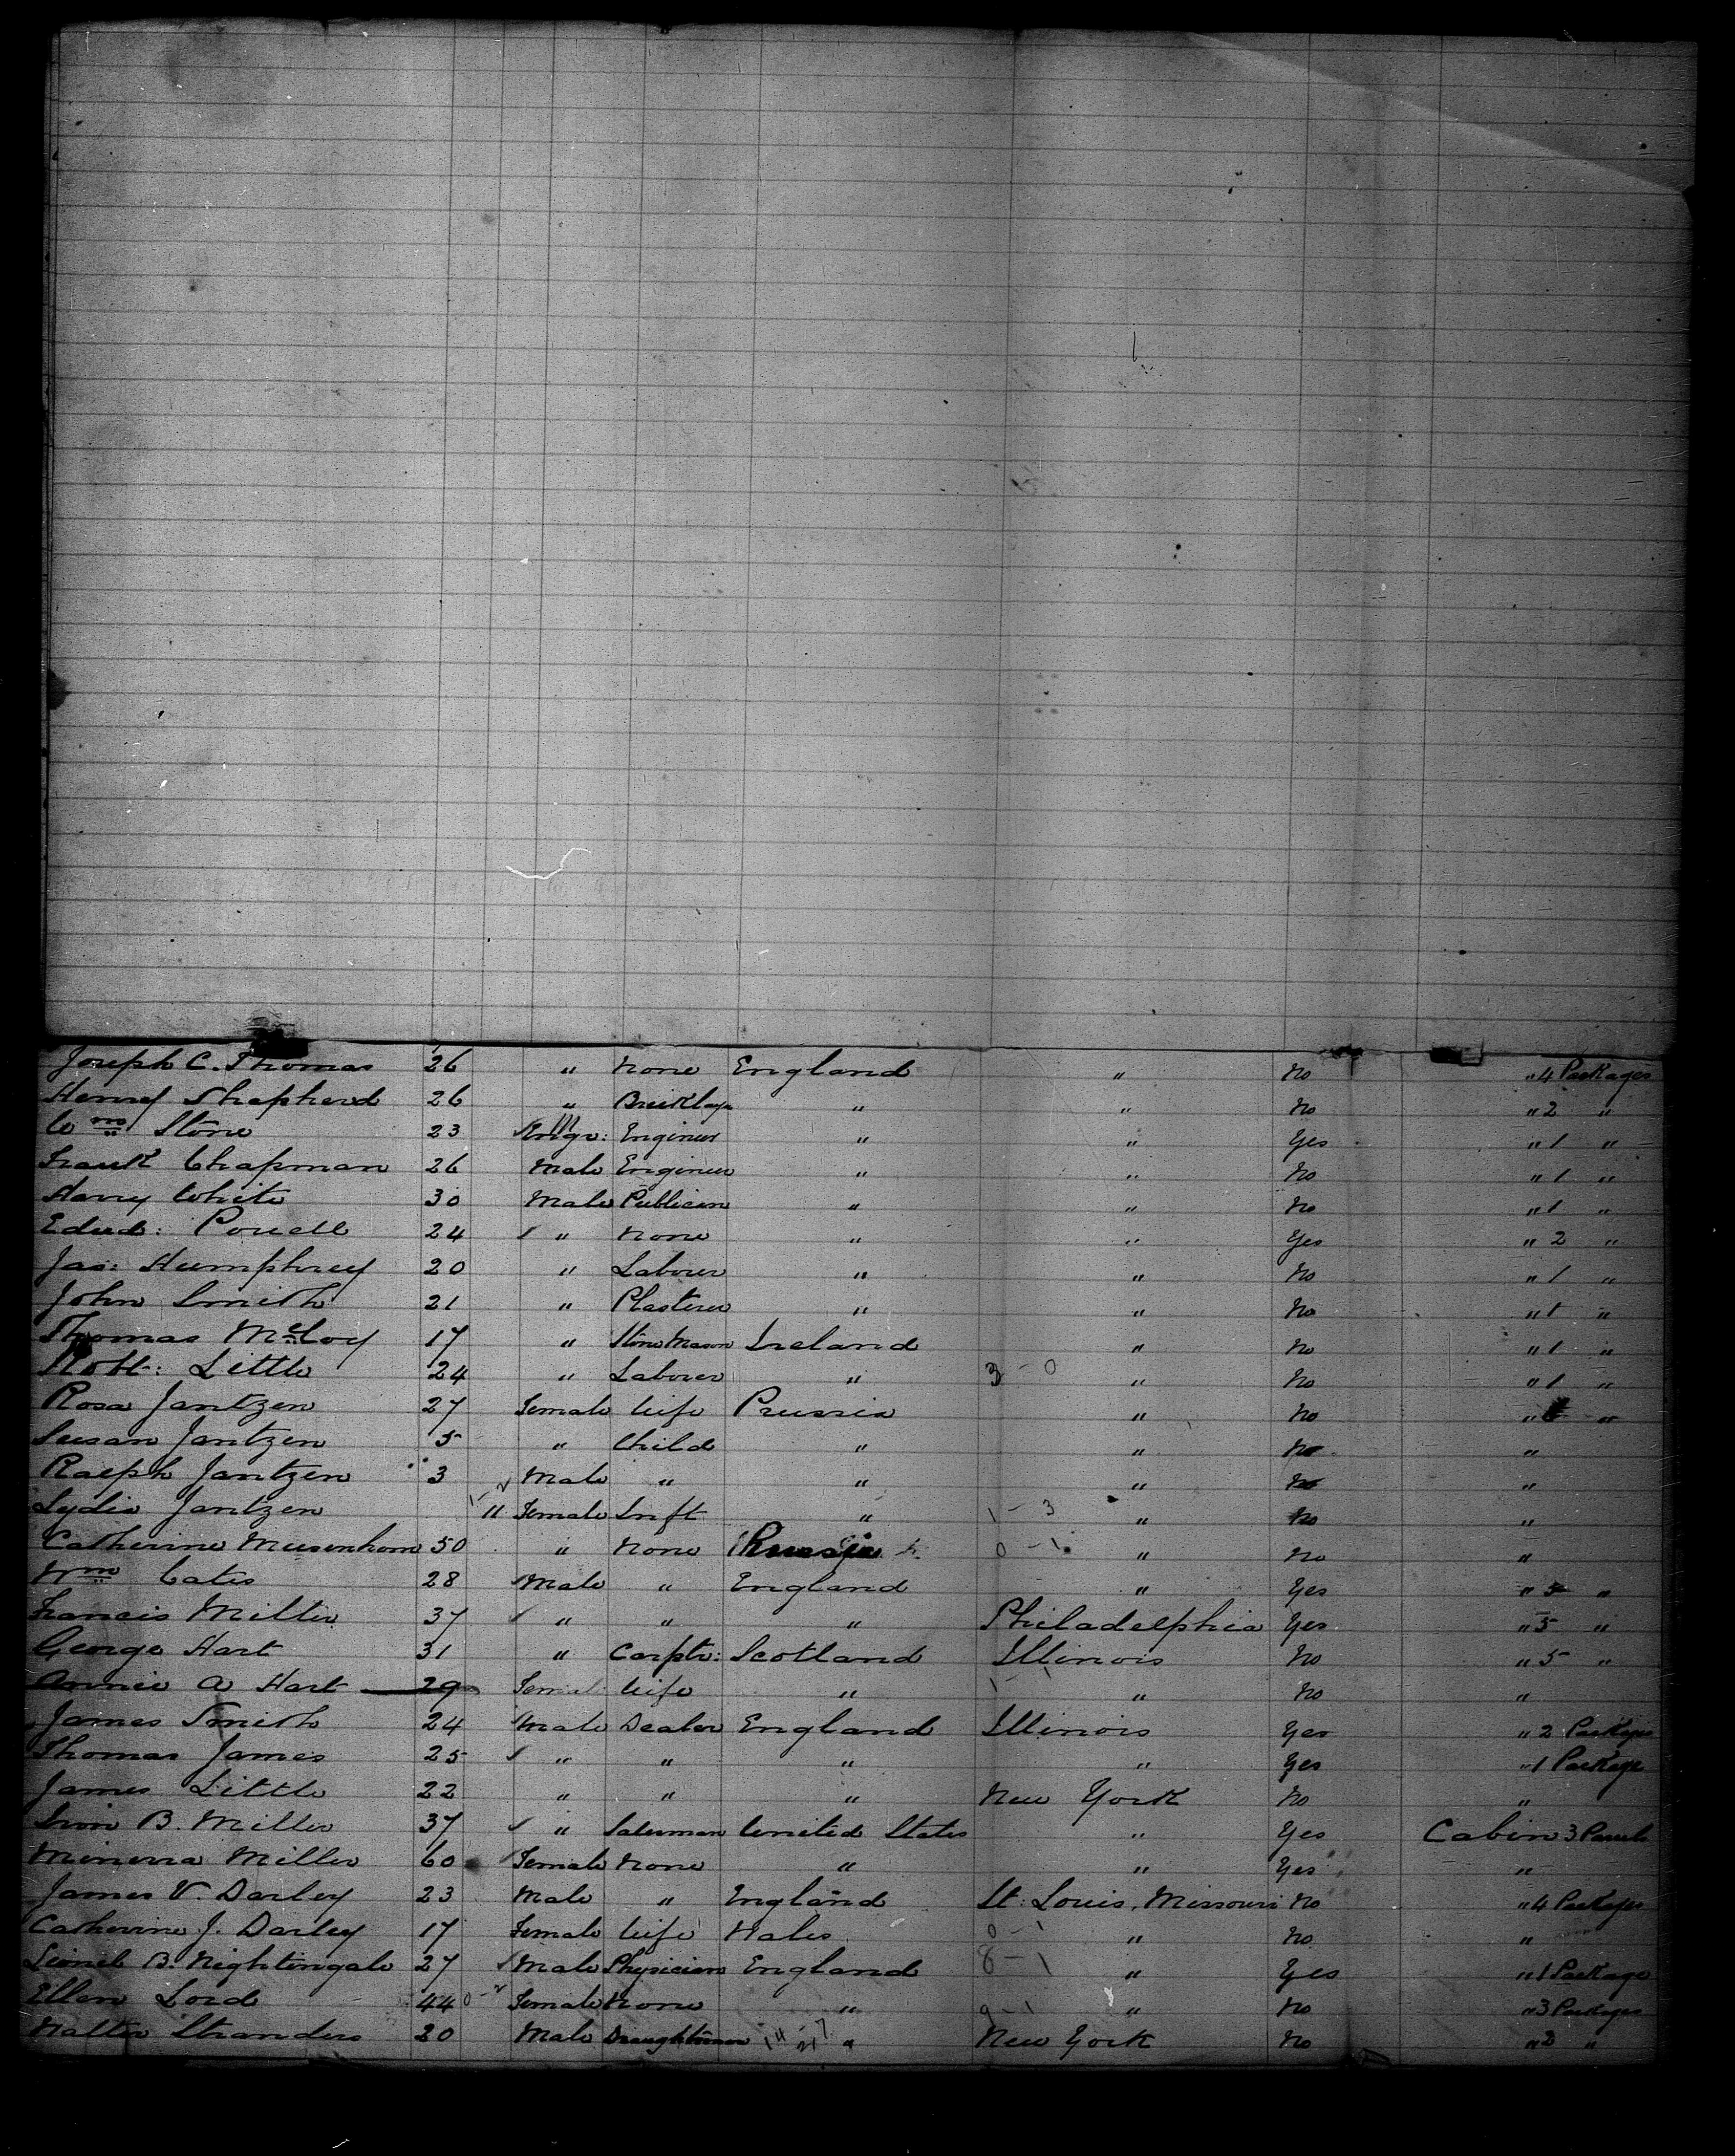 Joseph C. Thomas 26 " None England " No " 4 Packages
Henry Shepherd 26 " Bricklayr " " No " 2 "
Wm Stone 23 Engr: Engineer " " Yes " 1 "
Frank Chapman 26 Male Engineer " " No " 1 "
Harry White 30 Male Publican " " No " 1 "
Edwd: Powell 24 " None " " Yes " 2 "
Jas: Humphrey 20 " Laborer " " No " 1 "
John Smith 21 " Plasterer " " No " 1 "
Thomas McCoy 17 " Stone Mason Ireland " No " 1 "
Robt: Little 24 " Laborer " 3 - 0 " No " 1 "
Rosa Jantzen 27 Female Wife Prussia " No " "
Susan Jantzen 5 " Child " " No "
Ralph Jantzen 3 Male " " " No "
Lydia Jantzen 11 Female Inft " 1 - 3 " No "
Catherine 50 " None Russia 0 - 1 " No "
Wm Cates 28 Male " England " Yes " 5 "
Francis Miller 37 " " " Philadelphia Yes " 5 "
George Hart 31 " Carptr: Scotland Illinois No " 5 "
Annie A Hart 29 Female Wife " " No "
James Smith 24 Male Dealer England Illinois Yes " 2 Packages
Thomas James 25 " " " " Yes " 1 Package
James Little 22 " " " New York No "
B. Miller 37 " Salesman United States " Yes Cabin 3 Parcels
Minerva Miller 60 Female None " " Yes "
James V. Darley 23 Male " England St. Louis, Missouri No " 4 Packages
Catherine J. Darley 17 Female Wife Wales 0 - 1 " No "
Lionel B. Nightingale 27 Male Physician England 8 - 1 " Yes " 1 Package
Ellen Lord 44 Female None " 9 - 1 " No " 3 Packages
Walter Stranders 20 Male Draughtsman " New York No " 2 "